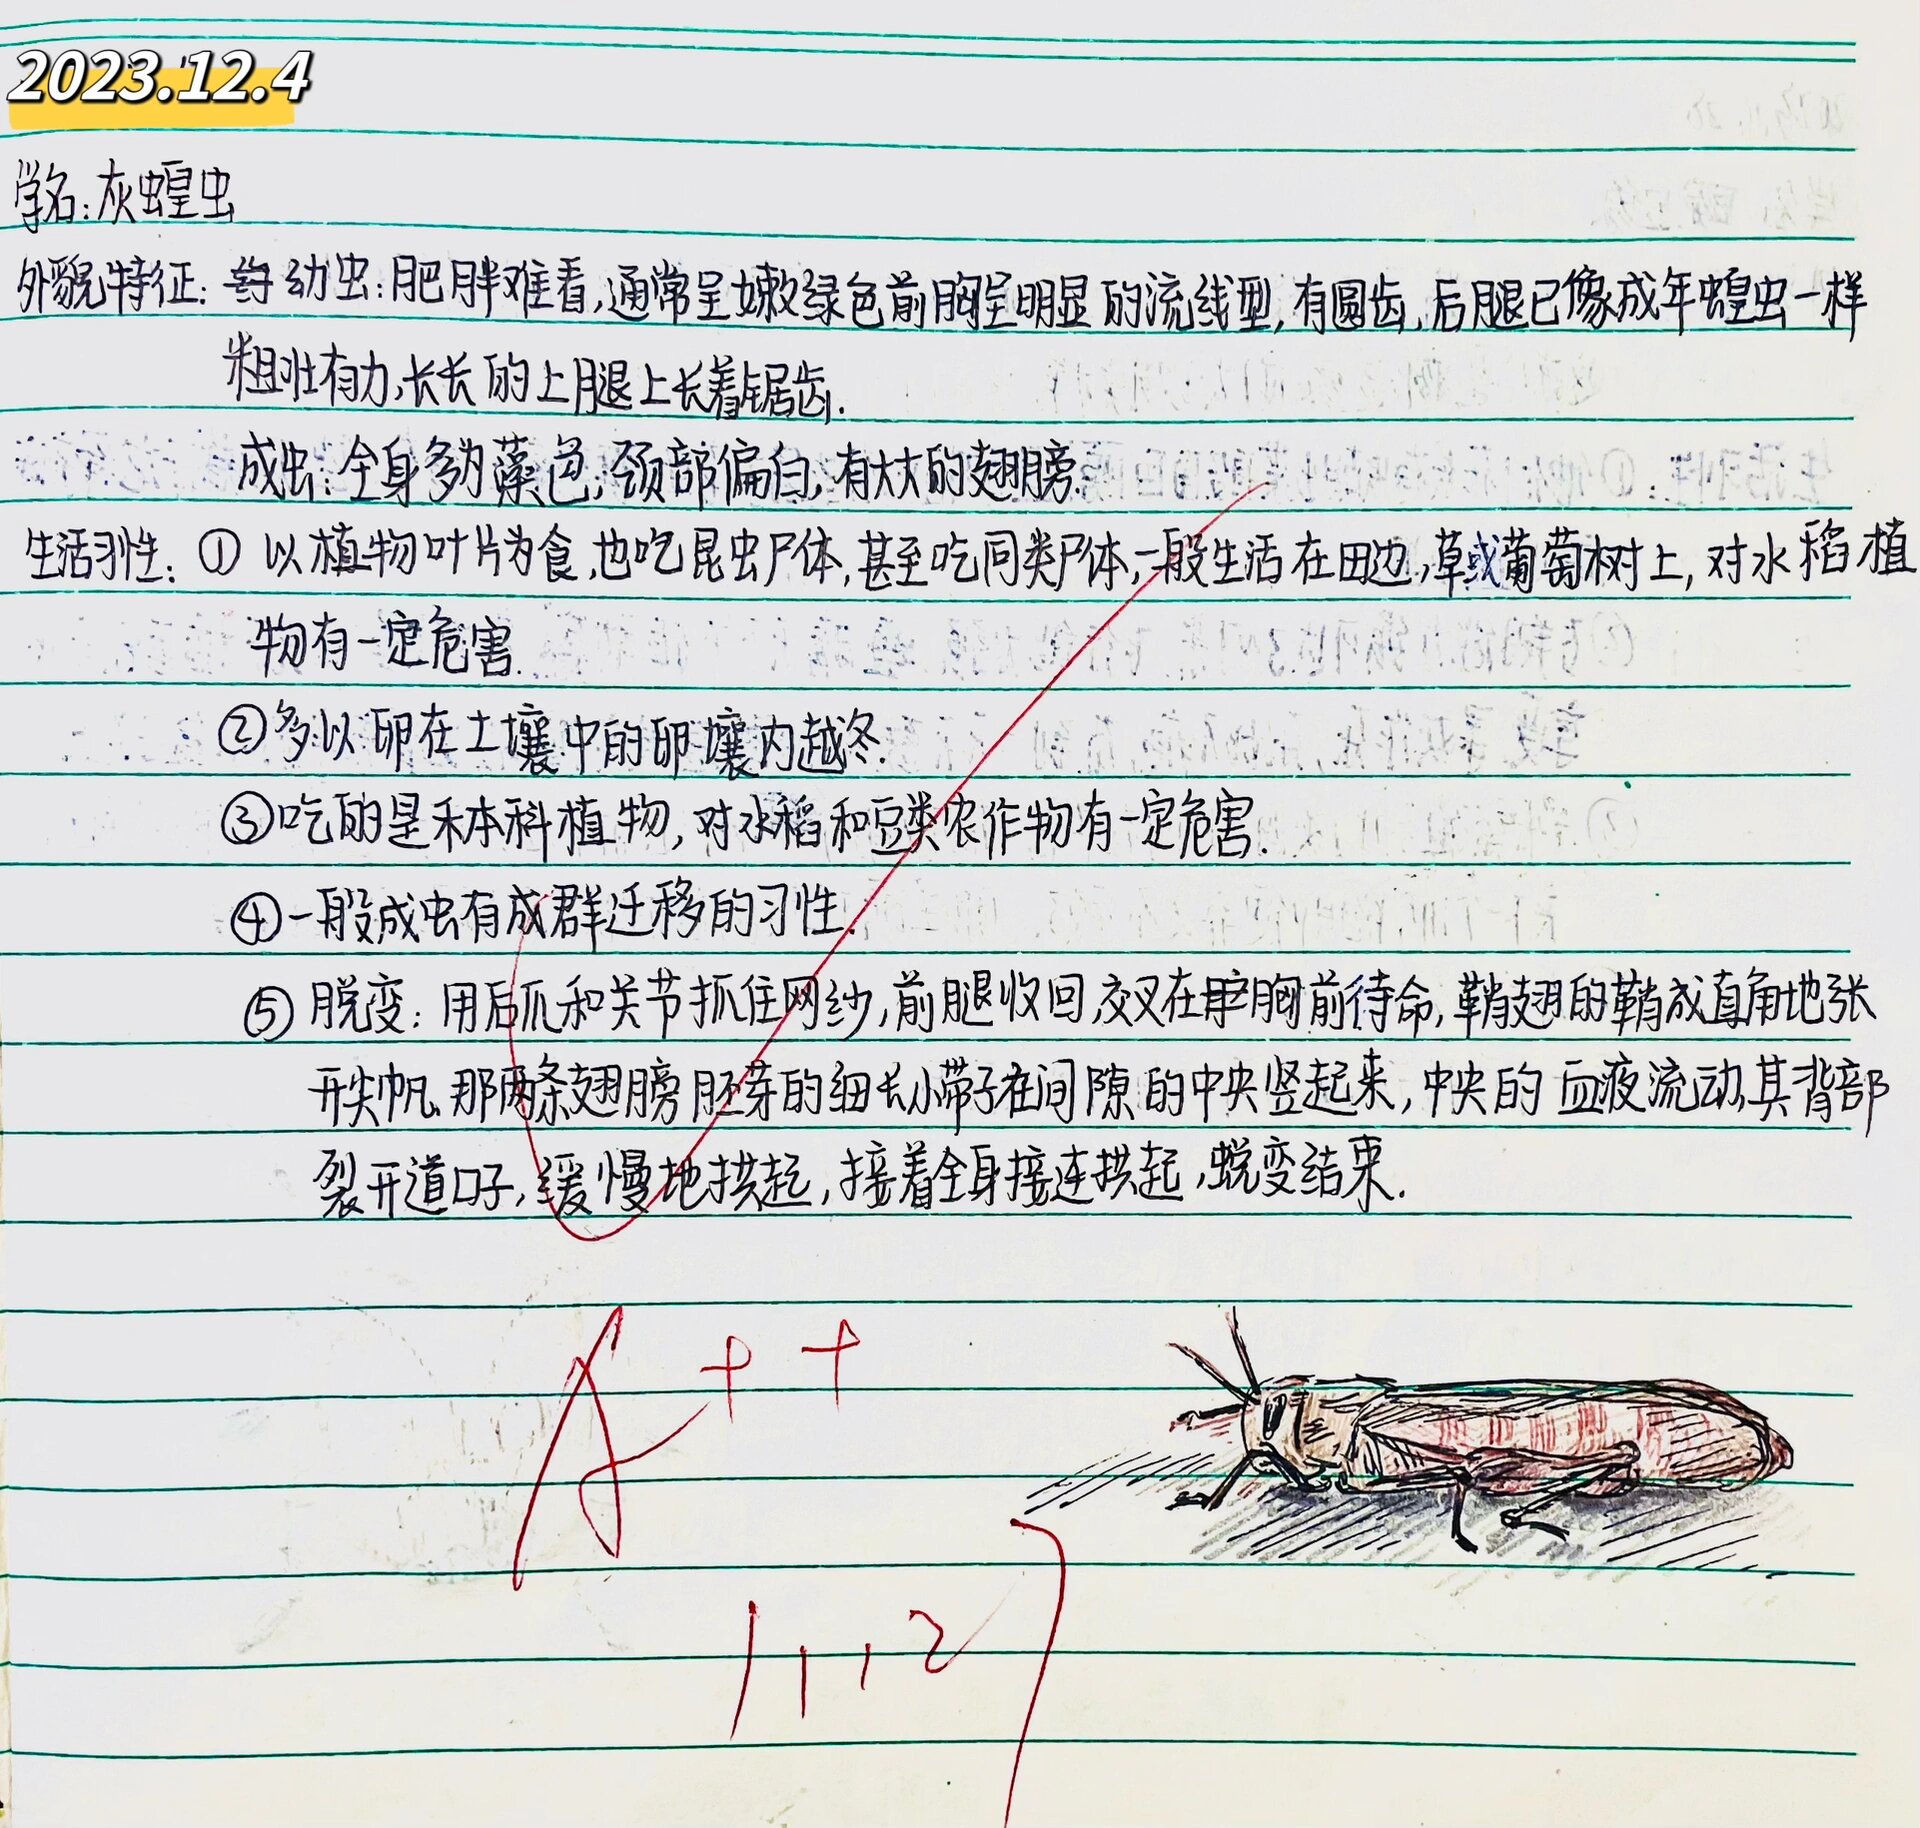 2023.12.4
学名:灰蝗虫
外貌特征: 幼虫:肥胖难看,通常呈嫩绿色前胸呈明显的流线型,有圆齿,后腿已像成年蝗虫一样
粗壮有力,长长的上腿上长着锯齿.
成虫:全身多为藻色,颈部偏白,有大大的翅膀.
生活习性: ① 以植物叶片为食,也吃昆虫尸体,甚至吃同类尸体,一般生活在田边,草或葡萄树上,对水稻植
物有一定危害.
②多以卵在土壤中的卵壤内越冬.
③吃的是禾本科植物,对水稻和豆类农作物有一定危害.
④一般成虫有成群迁移的习性.
⑤ 脱变:用后爪和关节抓住网纱,前腿收回,交叉在胸前待命,鞘翅的鞘成直角地张
开尖帆,那两条翅膀胚芽的细长小带子在间隙的中央竖起来,中央的血液流动,其背部
裂开道口子,缓慢地拱起,接着全身接连拱起,蜕变结束.
A++
11.27